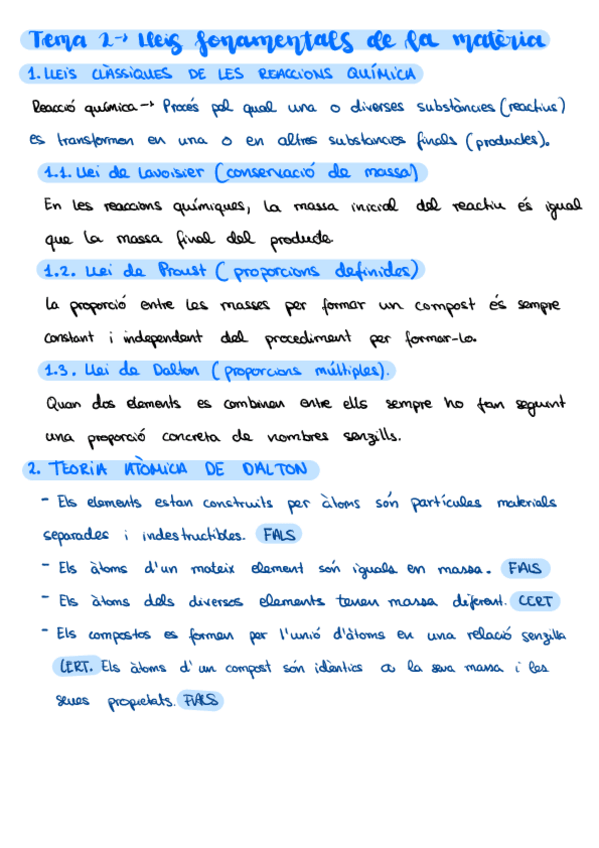 Tema 2-> Lleis fonamentals de la matèria
1. LLEIS CLÀSSIQUES DE LES REACCIONS QUÍMICA
Reacció química -> Procés pel qual una o diverses substàncies (reactius)
es transformen en una o en altres substancies finals (productes).
1.1. Llei de Lavoisier (conservació de massa)
En les reaccions químiques, la massa inicial del reactiu és igual
que la massa final del producte.
1.2. Llei de Proust (proporcions definides)
La proporció entre les masses per formar un compost és sempre
constant i independent del procediment per formar-lo.
1.3. Llei de Dalton (proporcions múltiples).
Quan dos elements es combinen entre ells sempre ho fan seguint
una proporció concreta de nombres senzills.
2. TEORIA ATÒMICA DE DALTON
- Els elements estan construits per àtoms són partícules materials
separades i indestructibles. FALS
- Els àtoms d'un mateix element són iguals en massa. FALS
- Els àtoms dels diversos elements tenen massa diferent. CERT
- Els compostos es formen per l'unió d'àtoms en una relació senzilla
CERT. Els àtoms d'un compost són idèntics a la seva massa i les
seues propietats. FALS